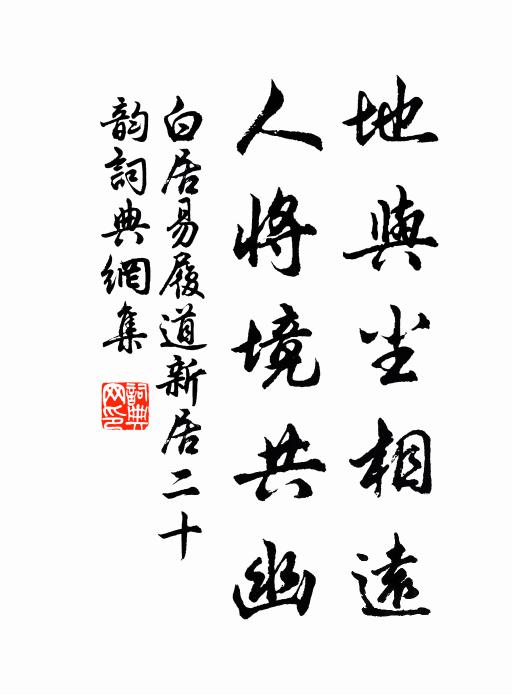 地與尘相遠
人將境共幽
白居易履道新居二十
韵詞典網集
詞典
网印